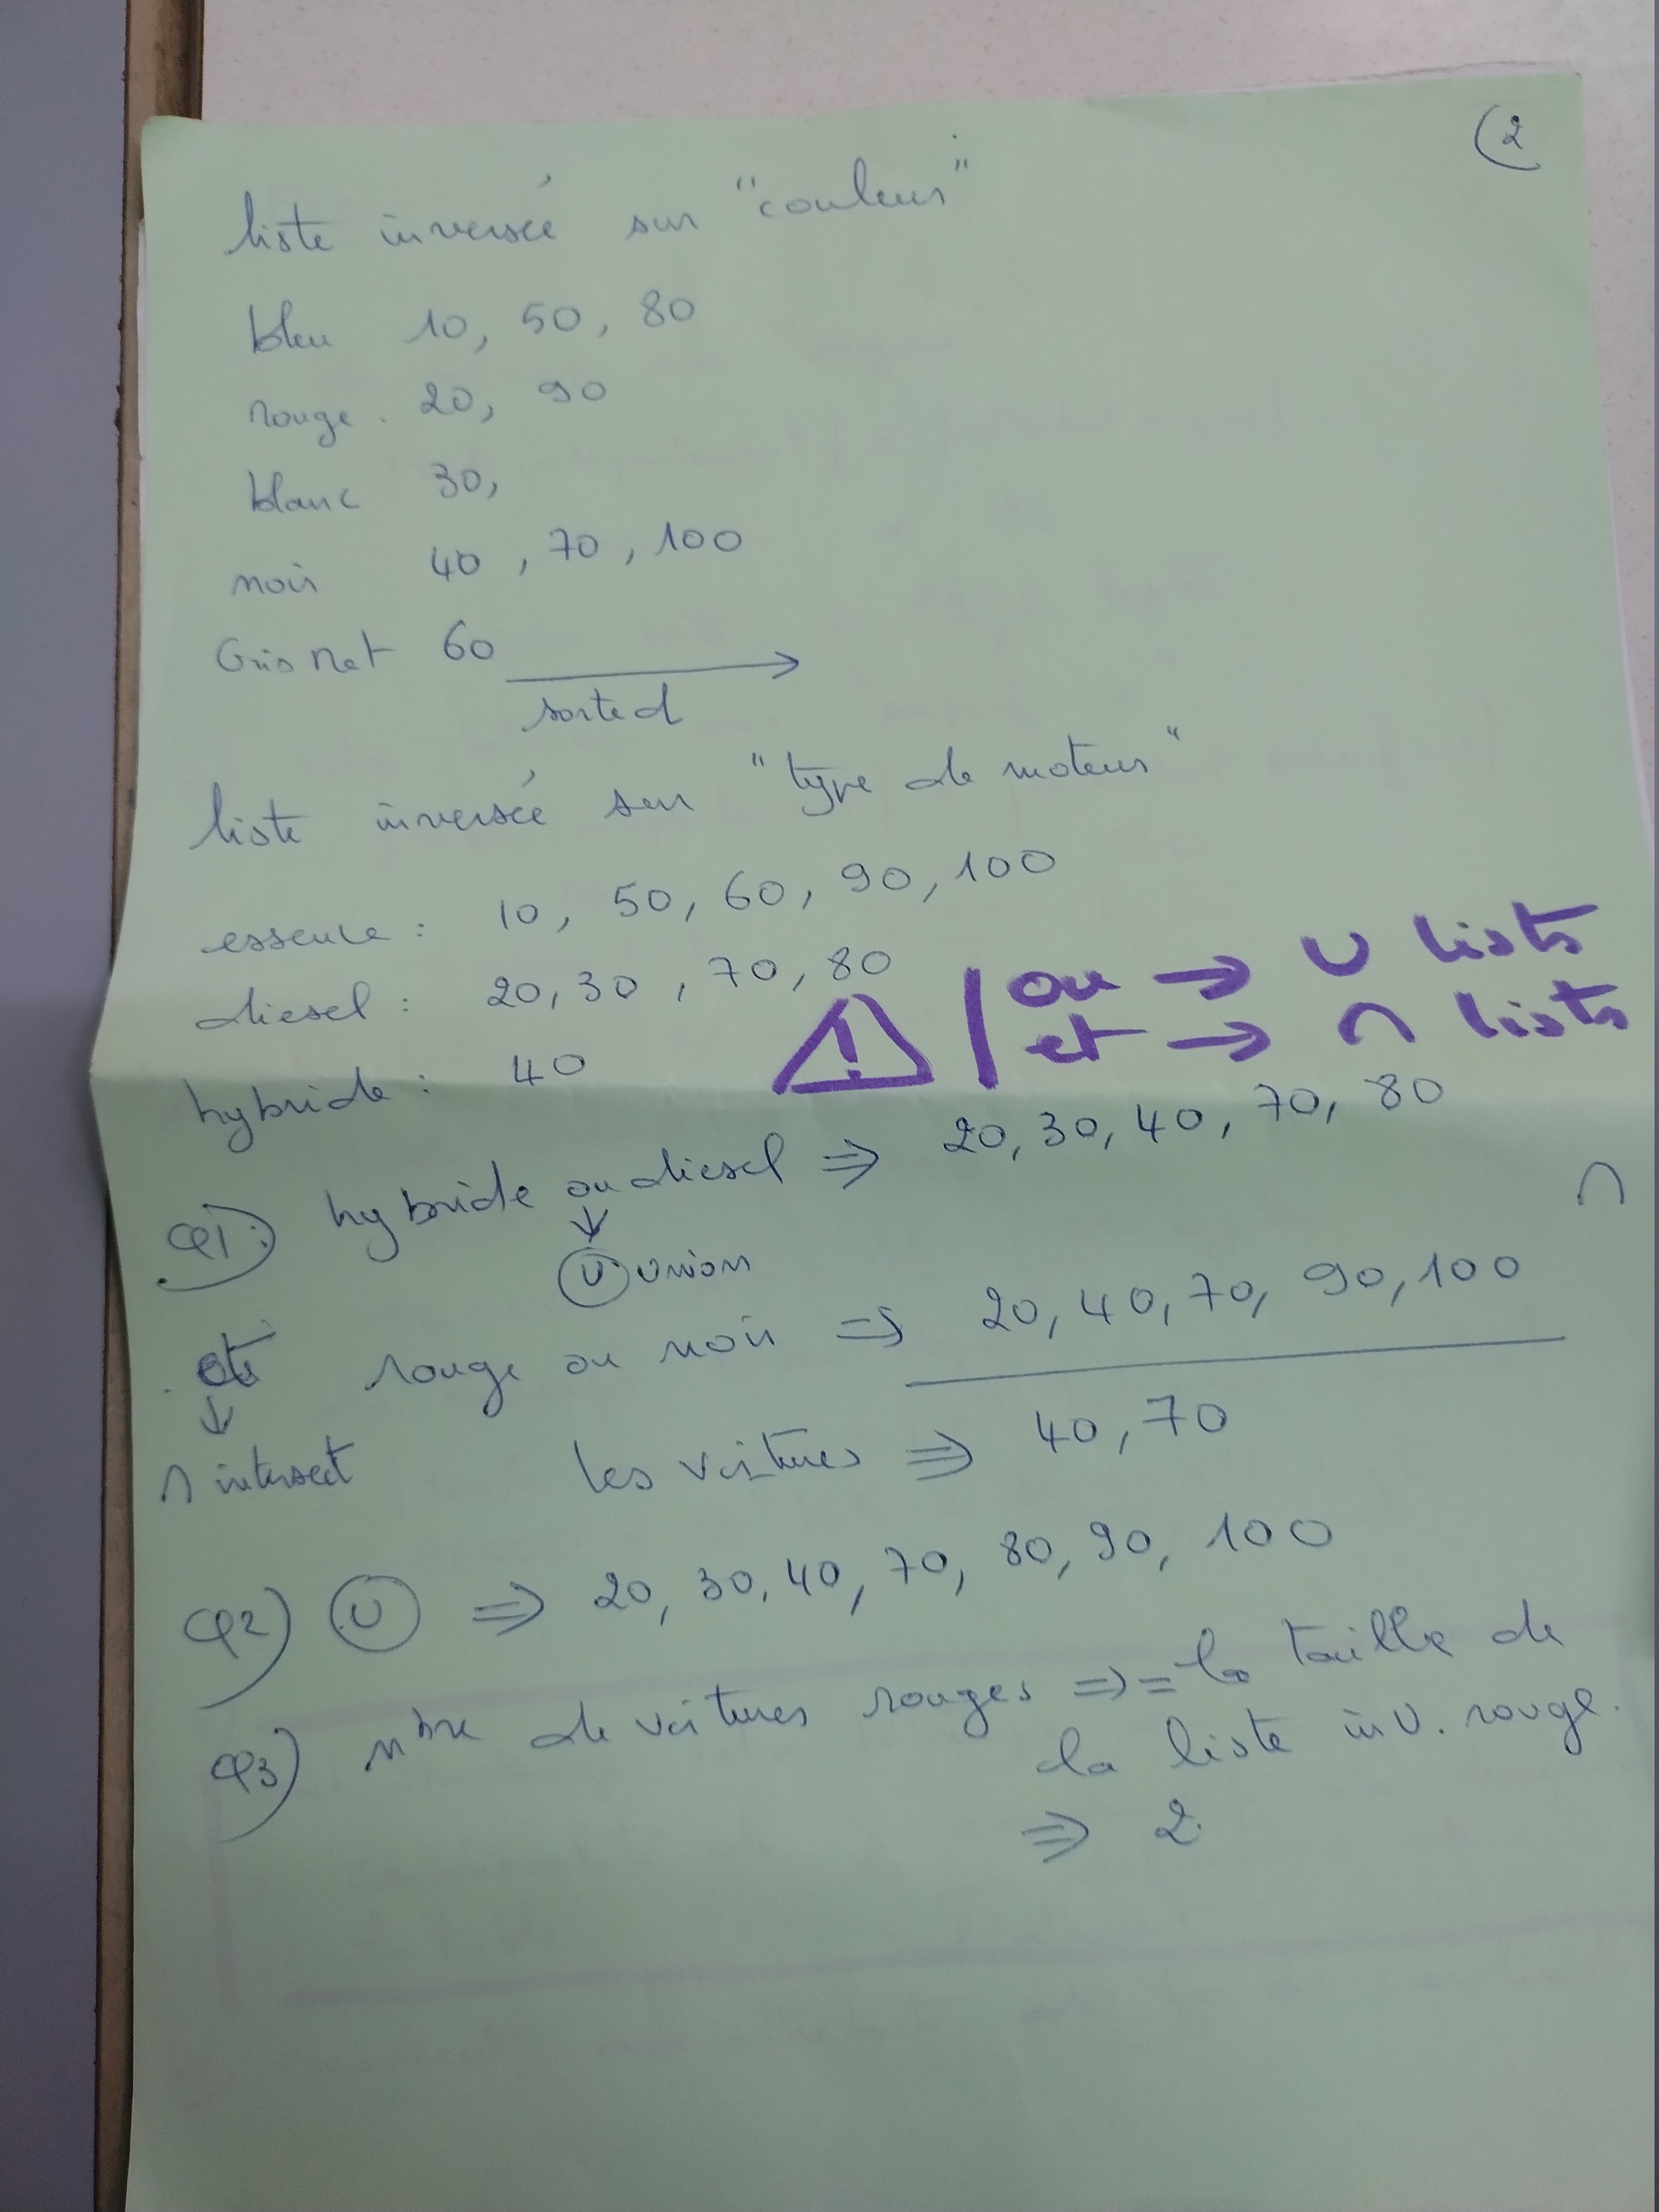 (2)
liste inversée sur "couleur"
bleu 10, 50, 80
rouge. 20, 90
blanc 30,
noir 40, 70, 100
Gris Net 60
sorted
liste inversée sur "type de moteur"
essence : 10, 50, 60, 90, 100
diesel : 20, 30, 70, 80
hybride : 40
! ou → U liste
et → ∩ liste
Q1) hybride ou diesel ⇒ 20, 30, 40, 70, 80 ∩
U union
et rouge ou noir ⇒ 20, 40, 70, 90, 100
∩ intersect les voitures ⇒ 40, 70
Q2) U ⇒ 20, 30, 40, 70, 80, 90, 100
Q3) Nbre de voitures rouges ⇒ = la taille de
la liste inv. rouge.
⇒ 2